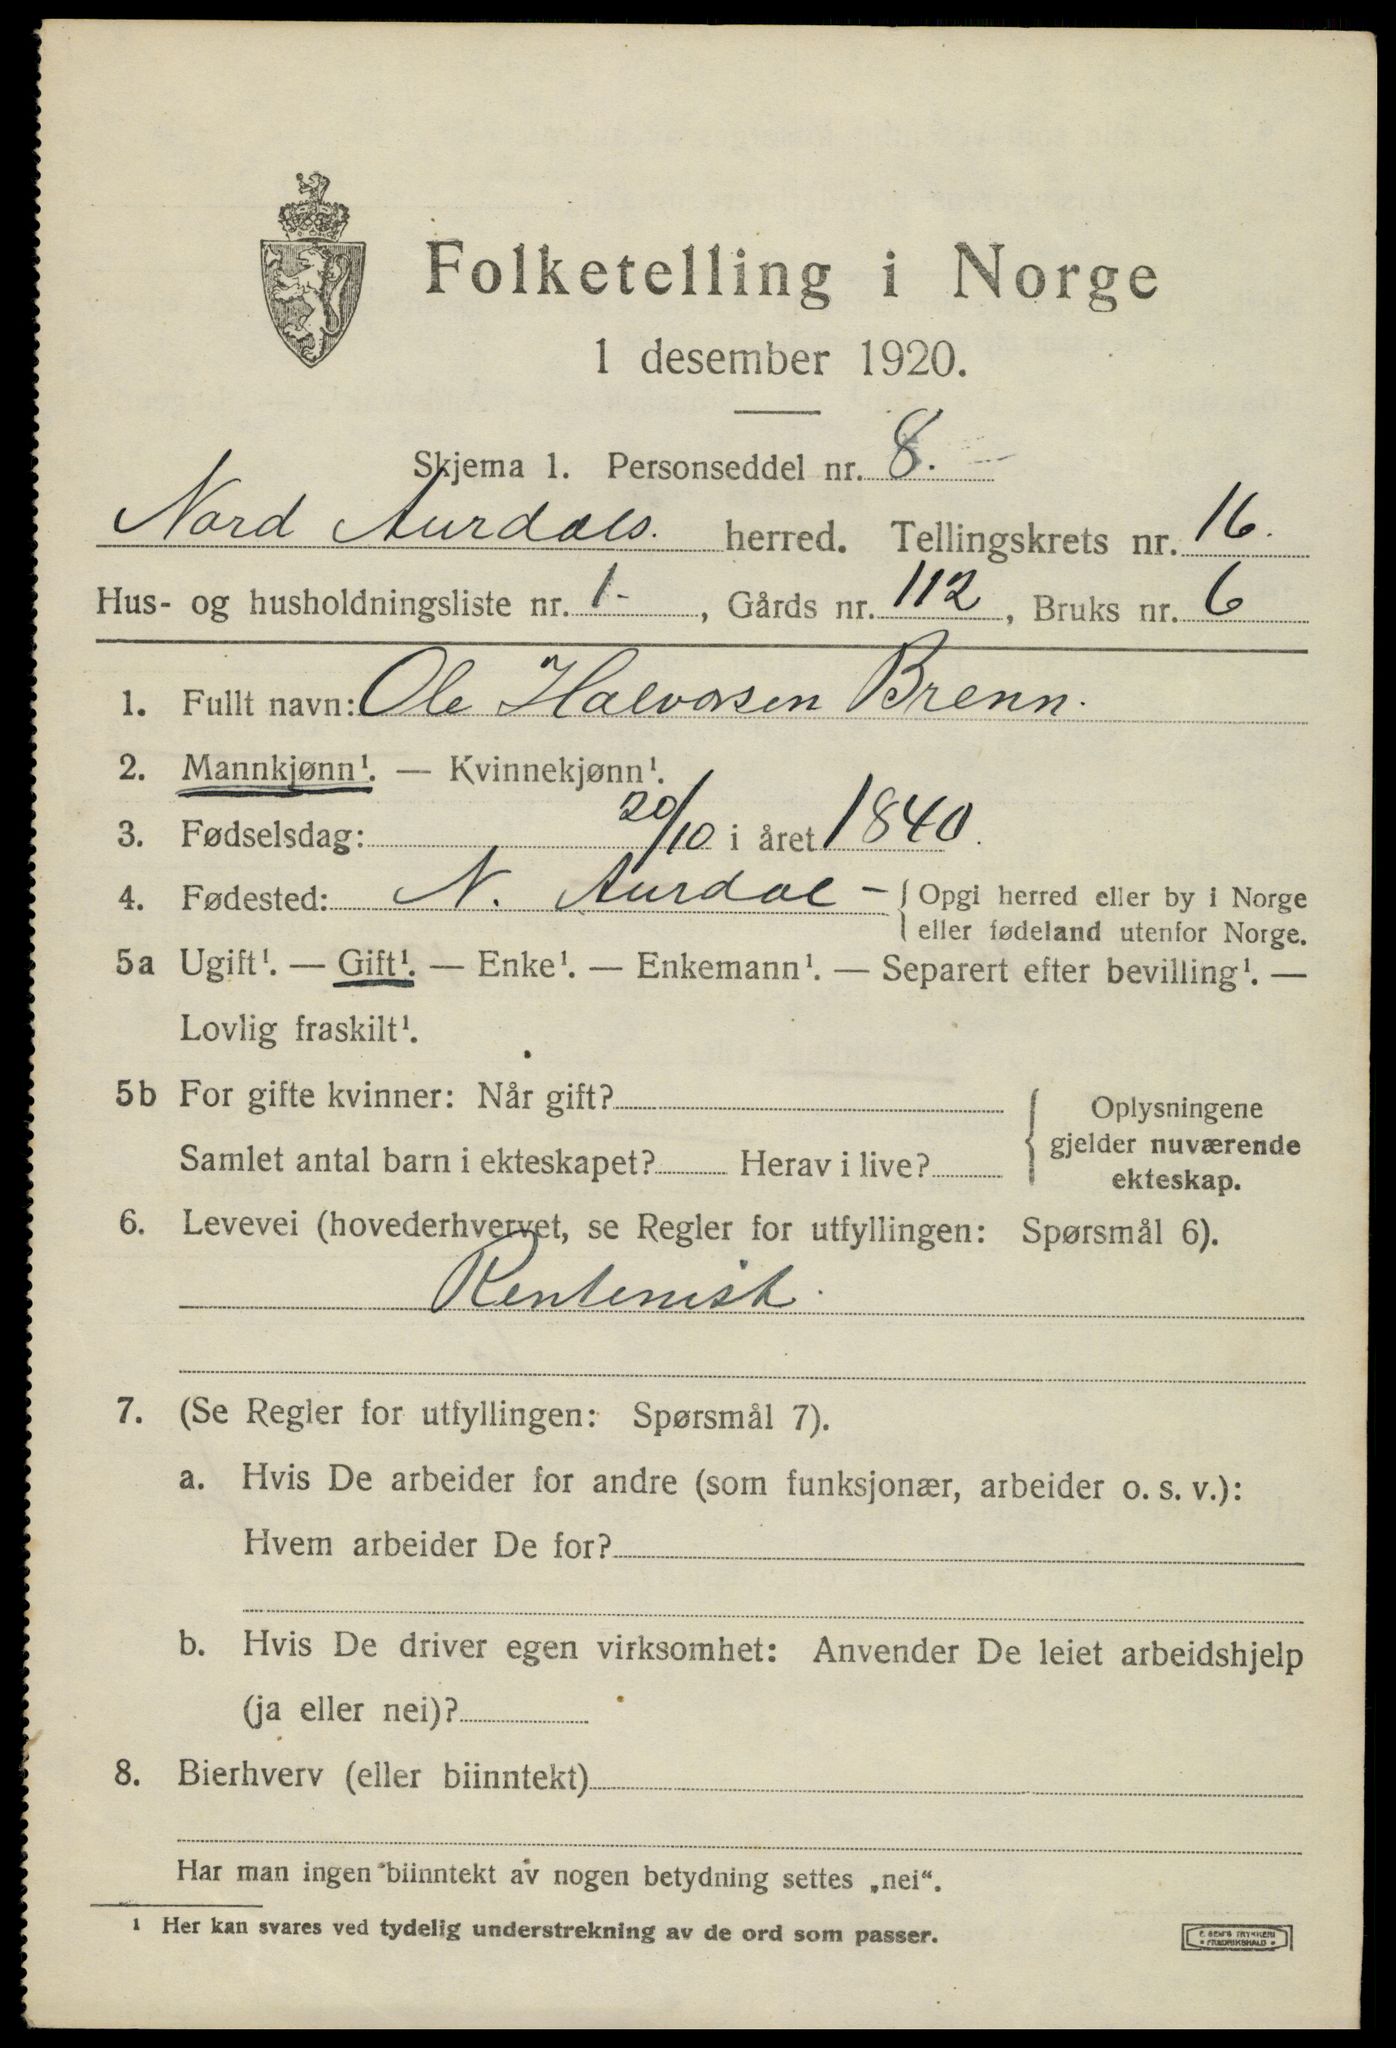 Folketelling i Norge
1 desember 1920.
Skjema 1. Personseddel nr. 8.
Nord Aurdals. herred. Tellingskrets nr. 16.
Hus- og husholdningsliste nr. 1-, Gårds nr. 112, Bruks nr. 6
1. Fullt navn: Ole Halvorsen Brenn.
2. Mannkjønn¹. — Kvinnekjønn¹.
3. Fødselsdag: 20/10 i året 1840.
4. Fødested: N. Aurdal - { Opgi herred eller by i Norge
eller fødeland utenfor Norge.
5a Ugift¹. — Gift¹. — Enke¹. — Enkemann¹. — Separert efter bevilling¹. —
Lovlig fraskilt¹.
5b For gifte kvinner: Når gift?
Samlet antal barn i ekteskapet? Herav i live?
Oplysningene
gjelder nuværende
ekteskap.
6. Levevei (hovederhvervet, se Regler for utfyllingen: Spørsmål 6).
Rentenist.
7. (Se Regler for utfyllingen: Spørsmål 7).
a. Hvis De arbeider for andre (som funksjonær, arbeider o. s. v.):
Hvem arbeider De for?
b. Hvis De driver egen virksomhet: Anvender De leiet arbeidshjelp
(ja eller nei)?
8. Bierhverv (eller biinntekt)
Har man ingen biinntekt av nogen betydning settes „nei“.
¹ Her kan svares ved tydelig understrekning av de ord som passer.
E. SEM'S TRYKKERI
FREDRIKSHALD